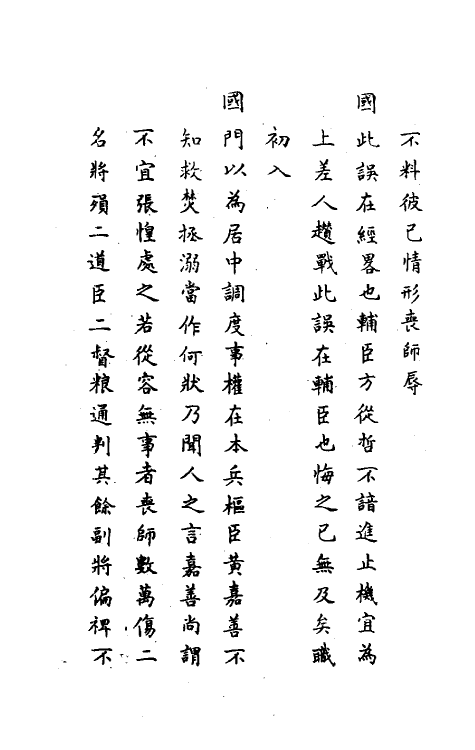 不料彼已情形喪師辱
國此誤在經畧也輔臣方從哲不諳進止機宜為
上差人趲戰此誤在輔臣也悔之已無及矣職
初入
國門以為居中調度事權在本兵樞臣黄嘉善不
知救焚拯溺當作何狀乃聞人之言嘉善尚謂
不宜張惶處之若從容無事者喪師數萬傷二
名將殞二道臣二督粮通判其餘副將偏裨不